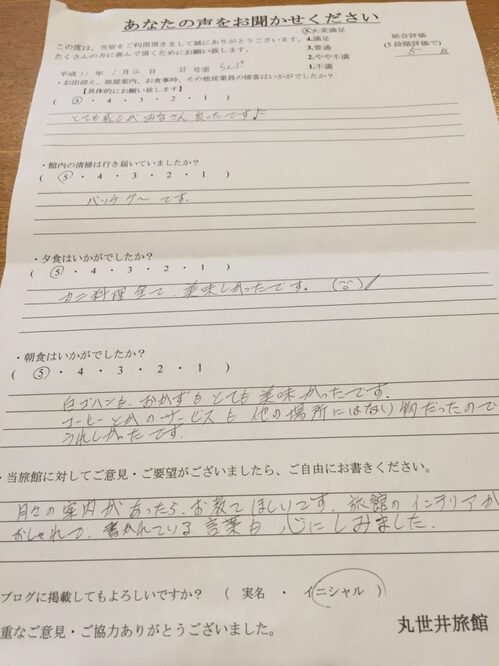 あなたの声をお聞かせください
この度は、当宿をご利用頂きまして誠にありがとうございます。
たくさんの方に喜んで頂くためにお願い致します。
5.大変満足
4.満足
3.普通
2.やや不満
1.不満
総合評価
(5段階評価で)
5 点
平成 31 年 1 月 12 日 号室
・お出迎え、部屋案内、お食事時、その他従業員の接客はいかがでしたか?
【具体的にお願い致します】
( 5 ・ 4 ・ 3 ・ 2 ・ 1 )
とても 良かったです♪
・館内の清掃は行き届いていましたか?
( 5 ・ 4 ・ 3 ・ 2 ・ 1 )
バッチグ〜です。
・夕食はいかがでしたか?
( 5 ・ 4 ・ 3 ・ 2 ・ 1 )
カニ料理全て、美味しかったです。
・朝食はいかがでしたか?
( 5 ・ 4 ・ 3 ・ 2 ・ 1 )
白ゴハンも、おかずもとても美味かったです。
コーヒーとかのサービスも他の場所にはない物だったので
うれしかったです。
・当旅館に対してご意見・ご要望がございましたら、ご自由にお書きください。
月々の案内があったら、お教てほしいです。旅館のインテリアが
おしゃれで、書かれている言葉も心にしみました。
ブログに掲載してもよろしいですか? ( 実名 ・ イニシャル )
重なご意見・ご協力ありがとうございました。
丸世井旅館